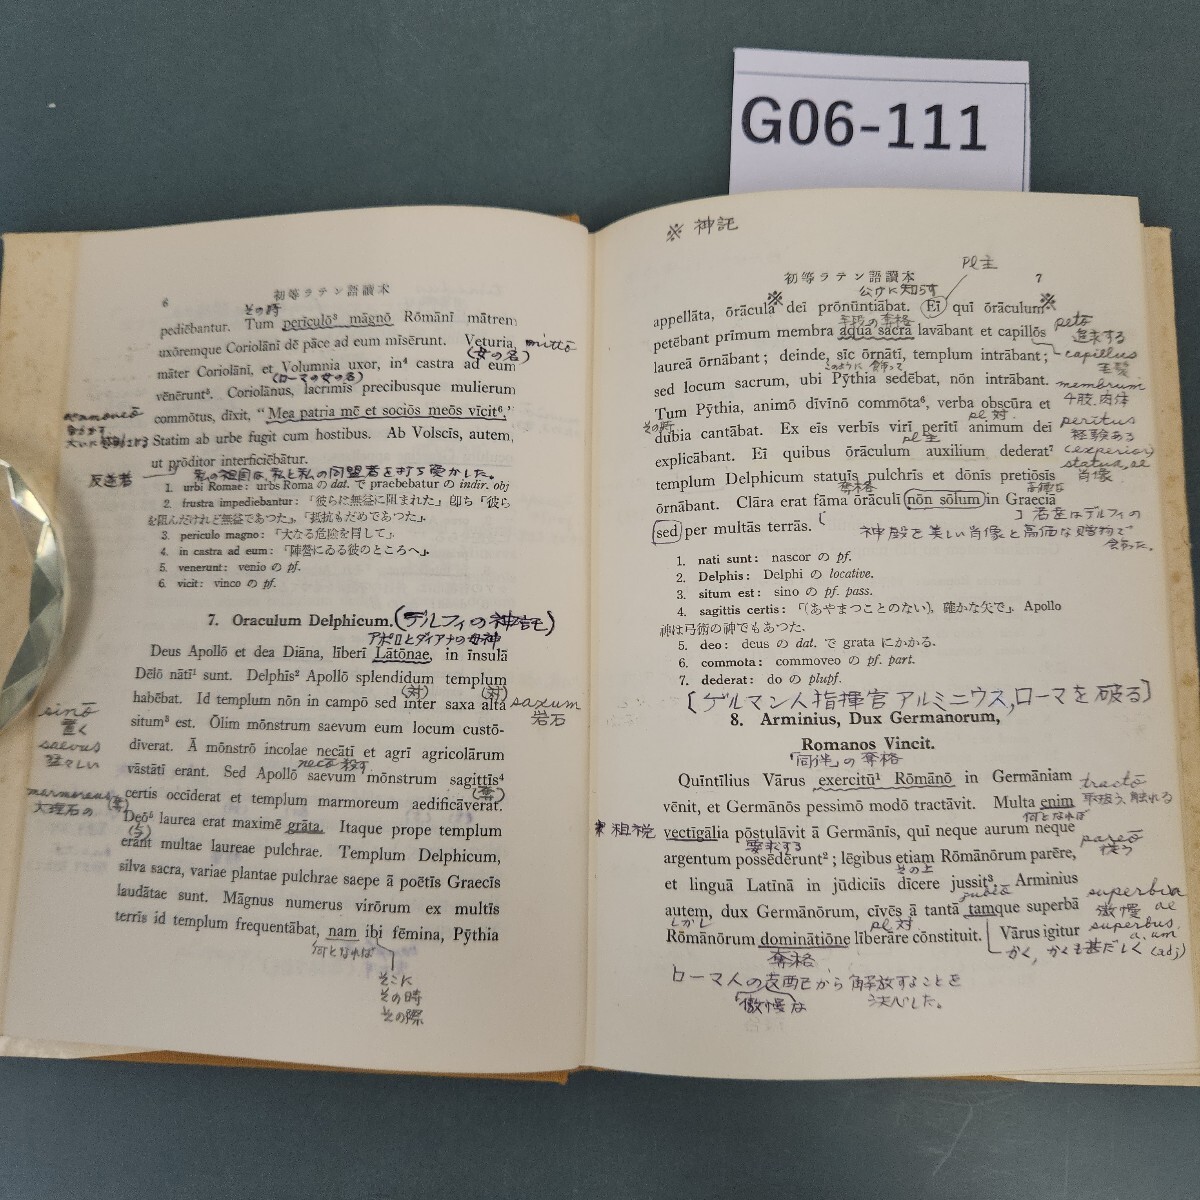 G06-111
6
初等ラテン語讀本
その時
pediēbantur. Tum perīculō³ māgnō Rōmānī mātrem
uxōremque Coriolānī dē pāce ad eum mīsērunt. Veturia, mittō
(女の名)
māter Coriolānī, et Volumnia uxor, in⁴ castra ad eum
(ローマの女の名)
vēnērunt⁵. Coriolānus, lacrimīs precibusque mulierum
commōtus, dīxit, "Mea patria mē et sociōs meōs vīcit⁶."
Statim ab urbe fugit cum hostibus. Ab Volscīs, autem,
ut prōditor interficiēbātur.
反逆者
私の祖国は、私と私の同盟者を打ち愛かした。
1. urbi Romae: urbs Roma の dat. で praebebatur の indir. obj
2. frustra impediebantur: 「彼らは無益に阻まれた」卽ち「彼ら
を阻んだけれど無益であつた」,「抵抗もだめであつた」.
3. periculo magno: 「大なる危險を冒して」.
4. in castra ad eum: 「陣營にゐる彼のところへ」.
5. venerunt: venio の pf.
6. vicit: vinco の pf.
7. Oraculum Delphicum. (デルフィの神託)
アポロとダイアナの女神
Deus Apollō et dea Diāna, līberī Lātōnae, in īnsulā
Dēlō nātī¹ sunt. Delphīs² Apollō splendidum templum
(対) (対)
habēbat. Id templum nōn in campō sed inter saxa alta saxum
岩石
situm³ est. Ōlim mōnstrum saevum eum locum custō-
sinō
置く
dīverat. Ā mōnstrō incolae necātī et agrī agricolārum
saevus
necō 殺す
vāstātī erant. Sed Apollō saevum mōnstrum sagittīs⁴
(奪)
certis occīderat et templum marmoreum aedificāverat.
marmoreus
大理石の
Deō⁵ laurea erat maximē grāta. Itaque prope templum
(与)
erant multae laureae pulchrae. Templum Delphicum,
silva sacra, variae plantae pulchrae saepe ā poētīs Graecīs
laudātae sunt. Māgnus numerus virōrum ex multīs
terrīs id templum frequentābat, nam ibi fēmina, Pȳthia
何となれば
そこに
その時
その際
※ 神託
pl主
初等ラテン語讀本
7
公けに知らす
appellāta, ōrācula※ deī prōnūntiābat. Eī quī ōrāculum※
手段の奪格
petēbant prīmum membra aquā sacrā lavābant et capillōs
petō
追求する
laureā ōrnābant; deinde, sīc ōrnātī, templum intrābant;
capillus
主髪
このように 飾って
sed locum sacrum, ubi Pȳthia sedēbat, nōn intrābant.
membrum
4肢,肉体
Tum Pȳthia, animō dīvīnō commōta⁶, verba obscūra et
その時
pl 対
dubia cantābat. Ex eīs verbīs virī perītī animum deī
peritus
経験ある
pl 主
explicābant. Eī quibus ōrāculum auxilium dederat⁷
(experior)
templum Delphicum statuīs pulchrīs et dōnīs pretiōsīs
statua, ae
肖像
奪格
高價な
ōrnābant. Clāra erat fāma ōrāculī nōn sōlum in Graeciā
sed per multās terrās.
君達はデルフィの
神殿を美しい肖像と高価な贈物で
飾った。
1. nati sunt: nascor の pf.
2. Delphis: Delphi の locative.
3. situm est: sino の pf. pass.
4. sagittis certis: 「(あやまつことのない), 確かな矢で」. Apollo
神は弓術の神でもあつた.
5. deo: deus の dat. で grata にかかる.
6. commota: commoveo の pf. part.
7. dederat: do の plupf.
[ゲルマン人指揮官アルミニウス,ローマを破る]
8. Arminius, Dux Germanorum,
Romanos Vincit.
「同伴」の奪格
Quīntīlius Vārus exercitū¹ Rōmānō in Germāniam
tractō
取扱う、触れる
vēnit, et Germānōs pessimō modō tractāvit. Multa enim
何となれば
*租税 vectīgālia pōstulāvit ā Germānīs, quī neque aurum neque
要求する
pareō
従う
argentum possēdērunt²; lēgibus etiam Rōmānōrum parēre,
その上
et linguā Latīnā in jūdiciīs dīcere jussit³. Arminius
superbia
ae
autem, dux Germānōrum, cīvēs ā tantā tamque superbā
傲慢
superbus,
a, um
(adj)
しかし
pl 対
Rōmānōrum dominātiōne līberāre cōnstituit. Vārus igitur
かく, かくも甚だしく
奪格
ローマ人の支配から解放することを
決心した。
傲慢な